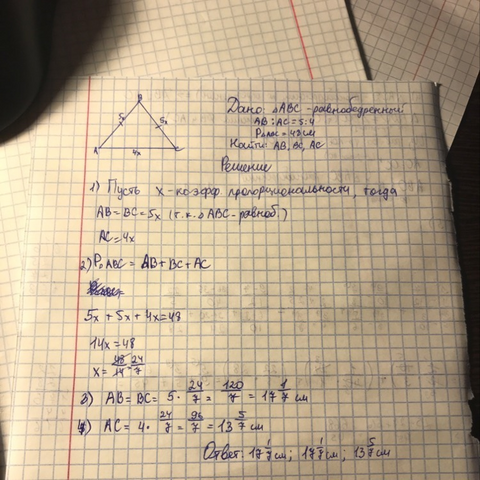 B
5x 5x
A 4x C
Дано: △ABC - равнобедренный
AB : AC = 5 : 4
P△ABC = 48 см
Найти: AB, BC, AC
Решение
1) Пусть x - коэфф. пропорциональности, тогда
AB = BC = 5x (т.к. △ABC - равноб.)
AC = 4x
2) P△ABC = AB + BC + AC
5x + 5x + 4x = 48
14x = 48
x = 48/14 = 24/7
3) AB = BC = 5 · 24/7 = 120/7 = 17 1/7 см
4) AC = 4 · 24/7 = 96/7 = 13 5/7 см
Ответ: 17 1/7 см; 17 1/7 см; 13 5/7 см